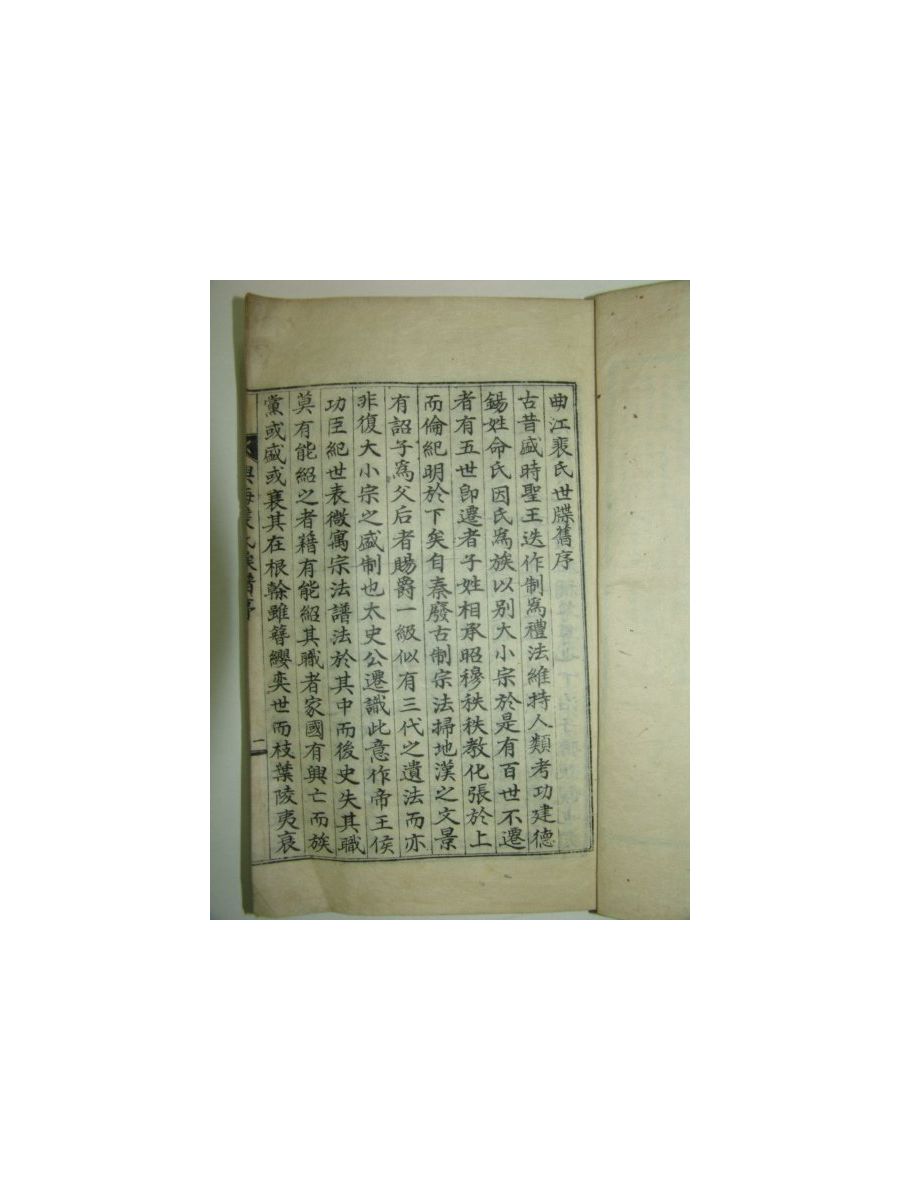 曲江裴氏世牒舊序
古昔盛時聖王迭作制爲禮法維持人類考功建德
錫姓命氏因氏爲族以別大小宗於是有百世不遷
者有五世卽遷者子姓相承昭穆秩秩教化張於上
而倫紀明於下矣自秦廢古制宗法掃地漢之文景
有詔子爲父后者賜爵一級似有三代之遺法而亦
非復大小宗之盛制也太史公遷識此意作帝王侯
功臣紀世表微寓宗法譜法於其中而後史失其職
莫有能紹之者籍有能紹其職者家國有興亡而族
黨或盛或衰其在根榦雖簪纓奕世而枝葉陵夷衰
興海裴氏族譜序
二